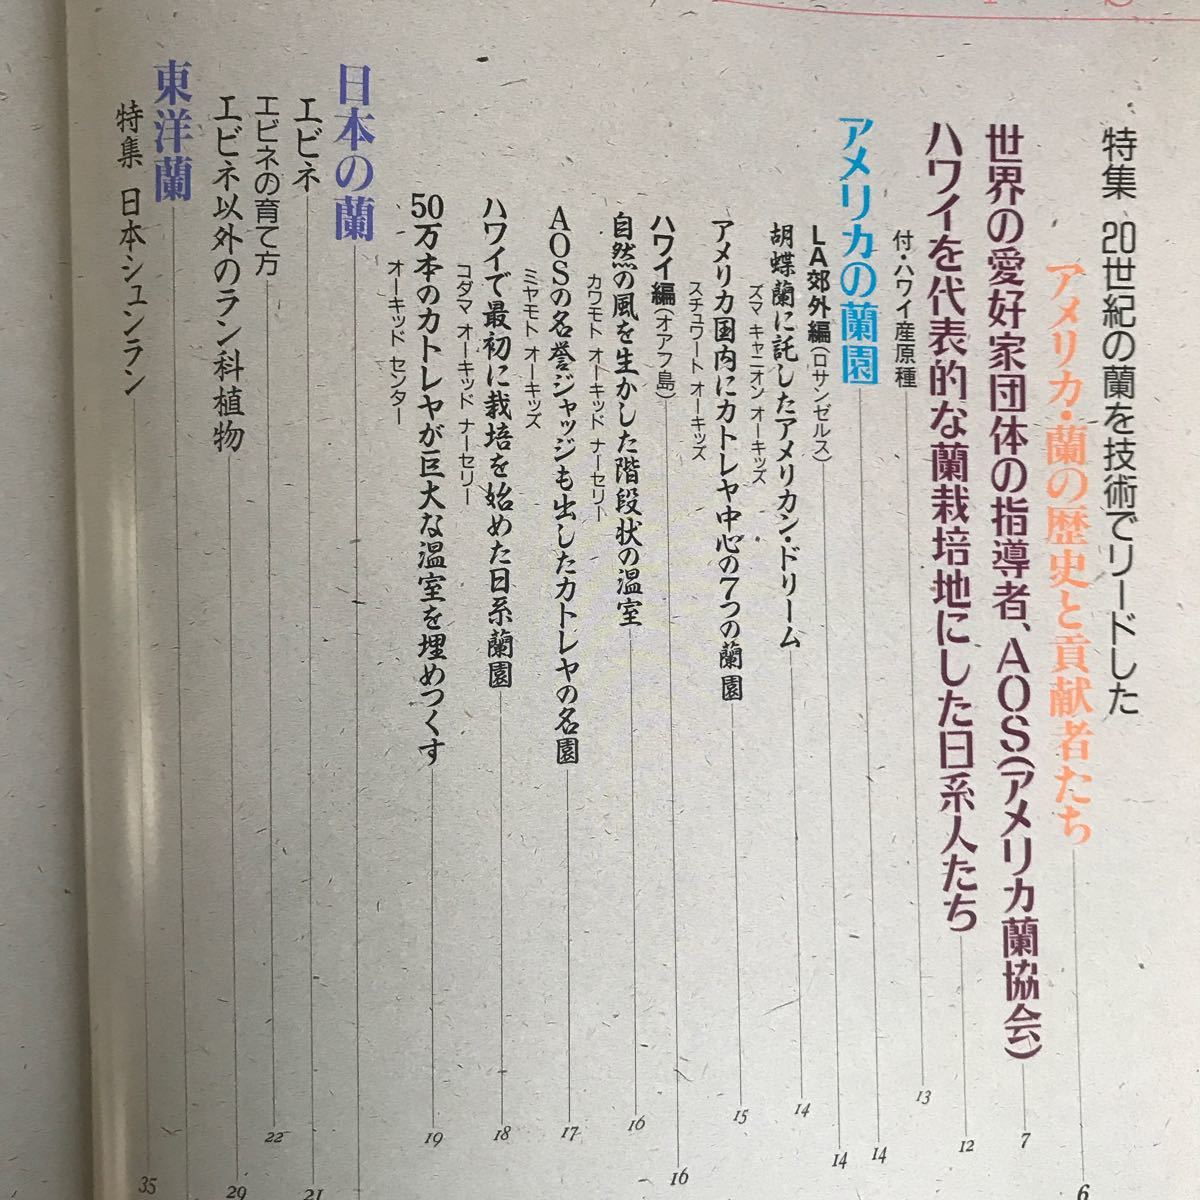 特集 20世紀の蘭を技術でリードした
アメリカ・蘭の歴史と貢献者たち 6
世界の愛好家団体の指導者、AOS(アメリカ蘭協会) 7
ハワイを代表的な蘭栽培地にした日系人たち 12
付・ハワイ産原種 13
アメリカの蘭園 14
LA郊外編(ロサンゼルス) 14
胡蝶蘭に託したアメリカン・ドリーム 14
ズマ キャニオン オーキッズ
アメリカ国内にカトレヤ中心の7つの蘭園 15
スチュワート オーキッズ
ハワイ編(オアフ島) 16
自然の風を生かした階段状の温室 16
カワモト オーキッド ナーセリー
AOSの名誉ジャッジも出したカトレヤの名園 17
ミヤモト オーキッズ
ハワイで最初に栽培を始めた日系蘭園 18
コダマ オーキッド ナーセリー
50万本のカトレヤが巨大な温室を埋めつくす 19
オーキッド センター
日本の蘭
エビネ 21
エビネの育て方 22
エビネ以外のラン科植物 29
東洋蘭
特集 日本シュンラン 35